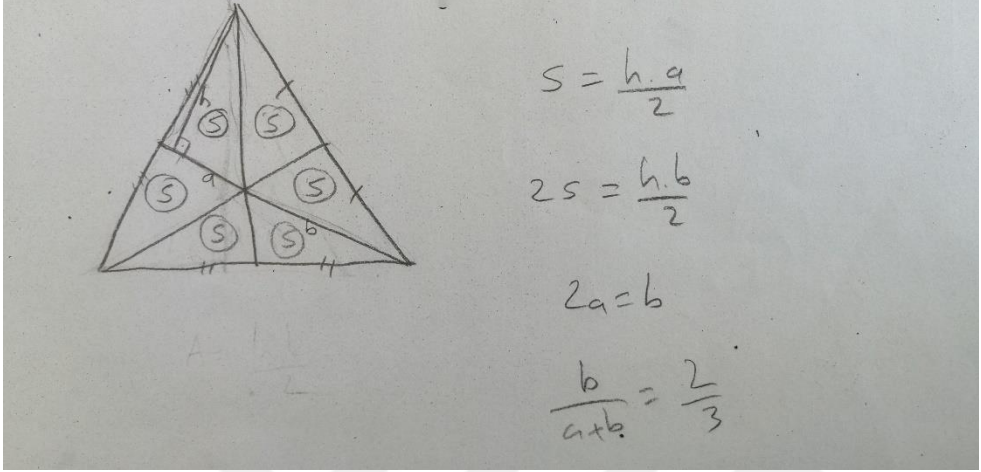 h
S
S
a
S
S
S
S
b
S = h.a / 2
2S = h.b / 2
2a = b
b / a+b = 2 / 3